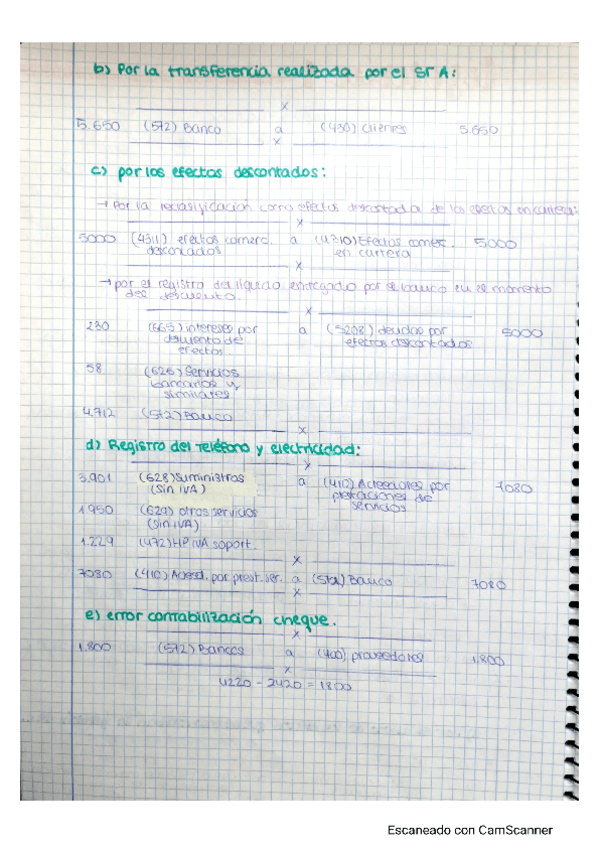 b) Por la transferencia realizada por el Sr A:
x
5.650 (572) Banco a (430) Clientes 5.650
x
c) por los efectos descontados:
→ Por la reclasificación como efectos descontados de los efectos en cartera:
x
5000 (4311) efectos comerc. a (4310) Efectos comer. 5000
descontados en cartera
x
→ por el registro del líquido entregado por el banco en el momento
del descuento.
x
230 (665) intereses por a (5208) deudas por 5000
descuento de efectos descontados
efectos.
58 (626) Servicios
bancarios y
similares
4.712 (572) Banco
x
d) Registro del Teléfono y electricidad:
x
3.901 (628) Suministros a (410) Acreedores por 7080
(sin IVA) prestaciones de
servicios
1.950 (629) otros servicios
(sin IVA)
1.229 (472) HP IVA soport.
x
7080 (410) Acreed. por prest. ser. a (572) Banco 7080
x
e) error contabilización cheque.
x
1.800 (572) Bancos a (400) proveedores 1.800
x
4220 - 2420 = 1800
Escaneado con CamScanner